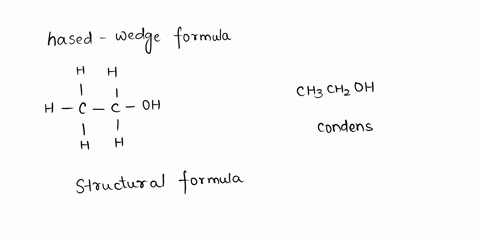 hased - wedge formula
H H
H - C - C - OH
H H
CH3 CH2 OH
Condens
Structural formula